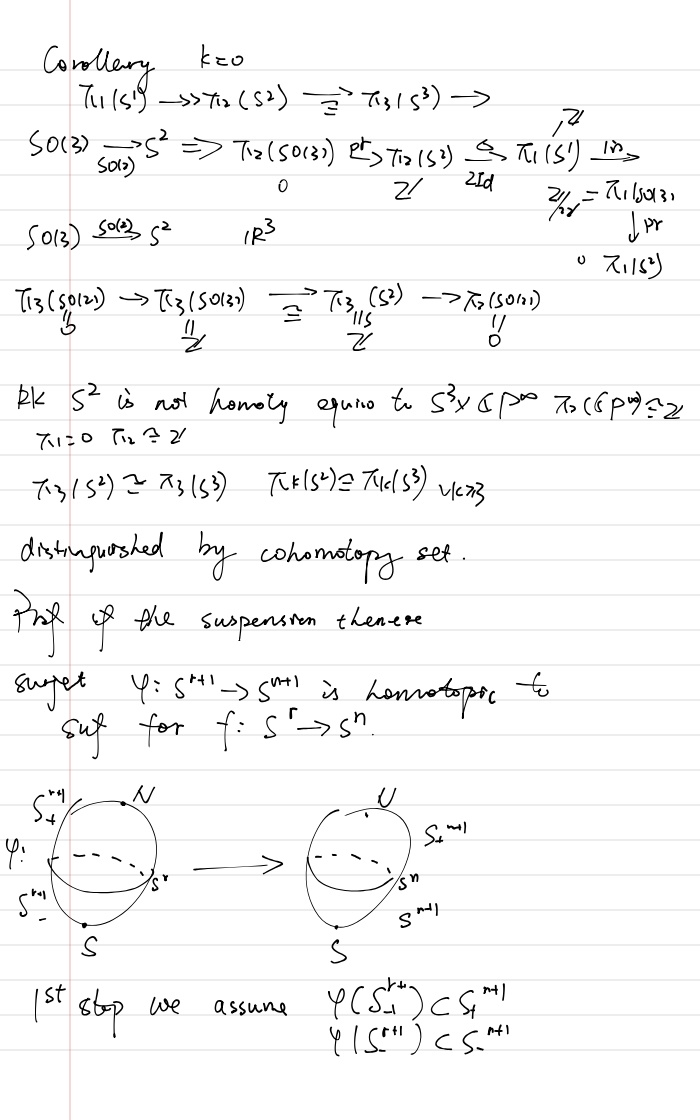 Corollary k=0
π₁(S¹) ↠ π₂(S²) ⟶≅ π₃(S³) ⟶
SO(3) ⟶SO(2) S² ⟹ π₂(SO(3)) pr→ π₂(S²) ⟶2Id π₁(S¹) in→
0 ℤ ℤ ℤ/2ℤ = π₁(SO(3))
↓ pr
0 π₁(S²)
SO(3) ⟶SO(2) S² ℝ³
π₃(SO(2)) → π₃(SO(3)) ⟶≅ π₃(S²) → π₂(SO(2))
0 ℤ ℤ 0
RK S² is not homoty equiv to S³× ℂP^∞ π₂(ℂP^∞) ≅ ℤ
π₁=0 π₂≅ℤ
π₃(S²) ≅ π₃(S³) πk(S²) ≅ πk(S³) ∀k≥3
distinguished by cohomotopy set.
Prof of the suspension
surjet φ: S^{r+1} → S^{n+1} is homotopic to
for f: S^r → S^n.
S₊^{r+1} N N
S₊^{n+1}
φ:
S^r S^n
S₋^{r+1} S^{n+1}
S S
1st step we assume φ(S₊^{r+1}) ⊂ S₊^{n+1}
φ(S₋^{r+1}) ⊂ S₋^{n+1}